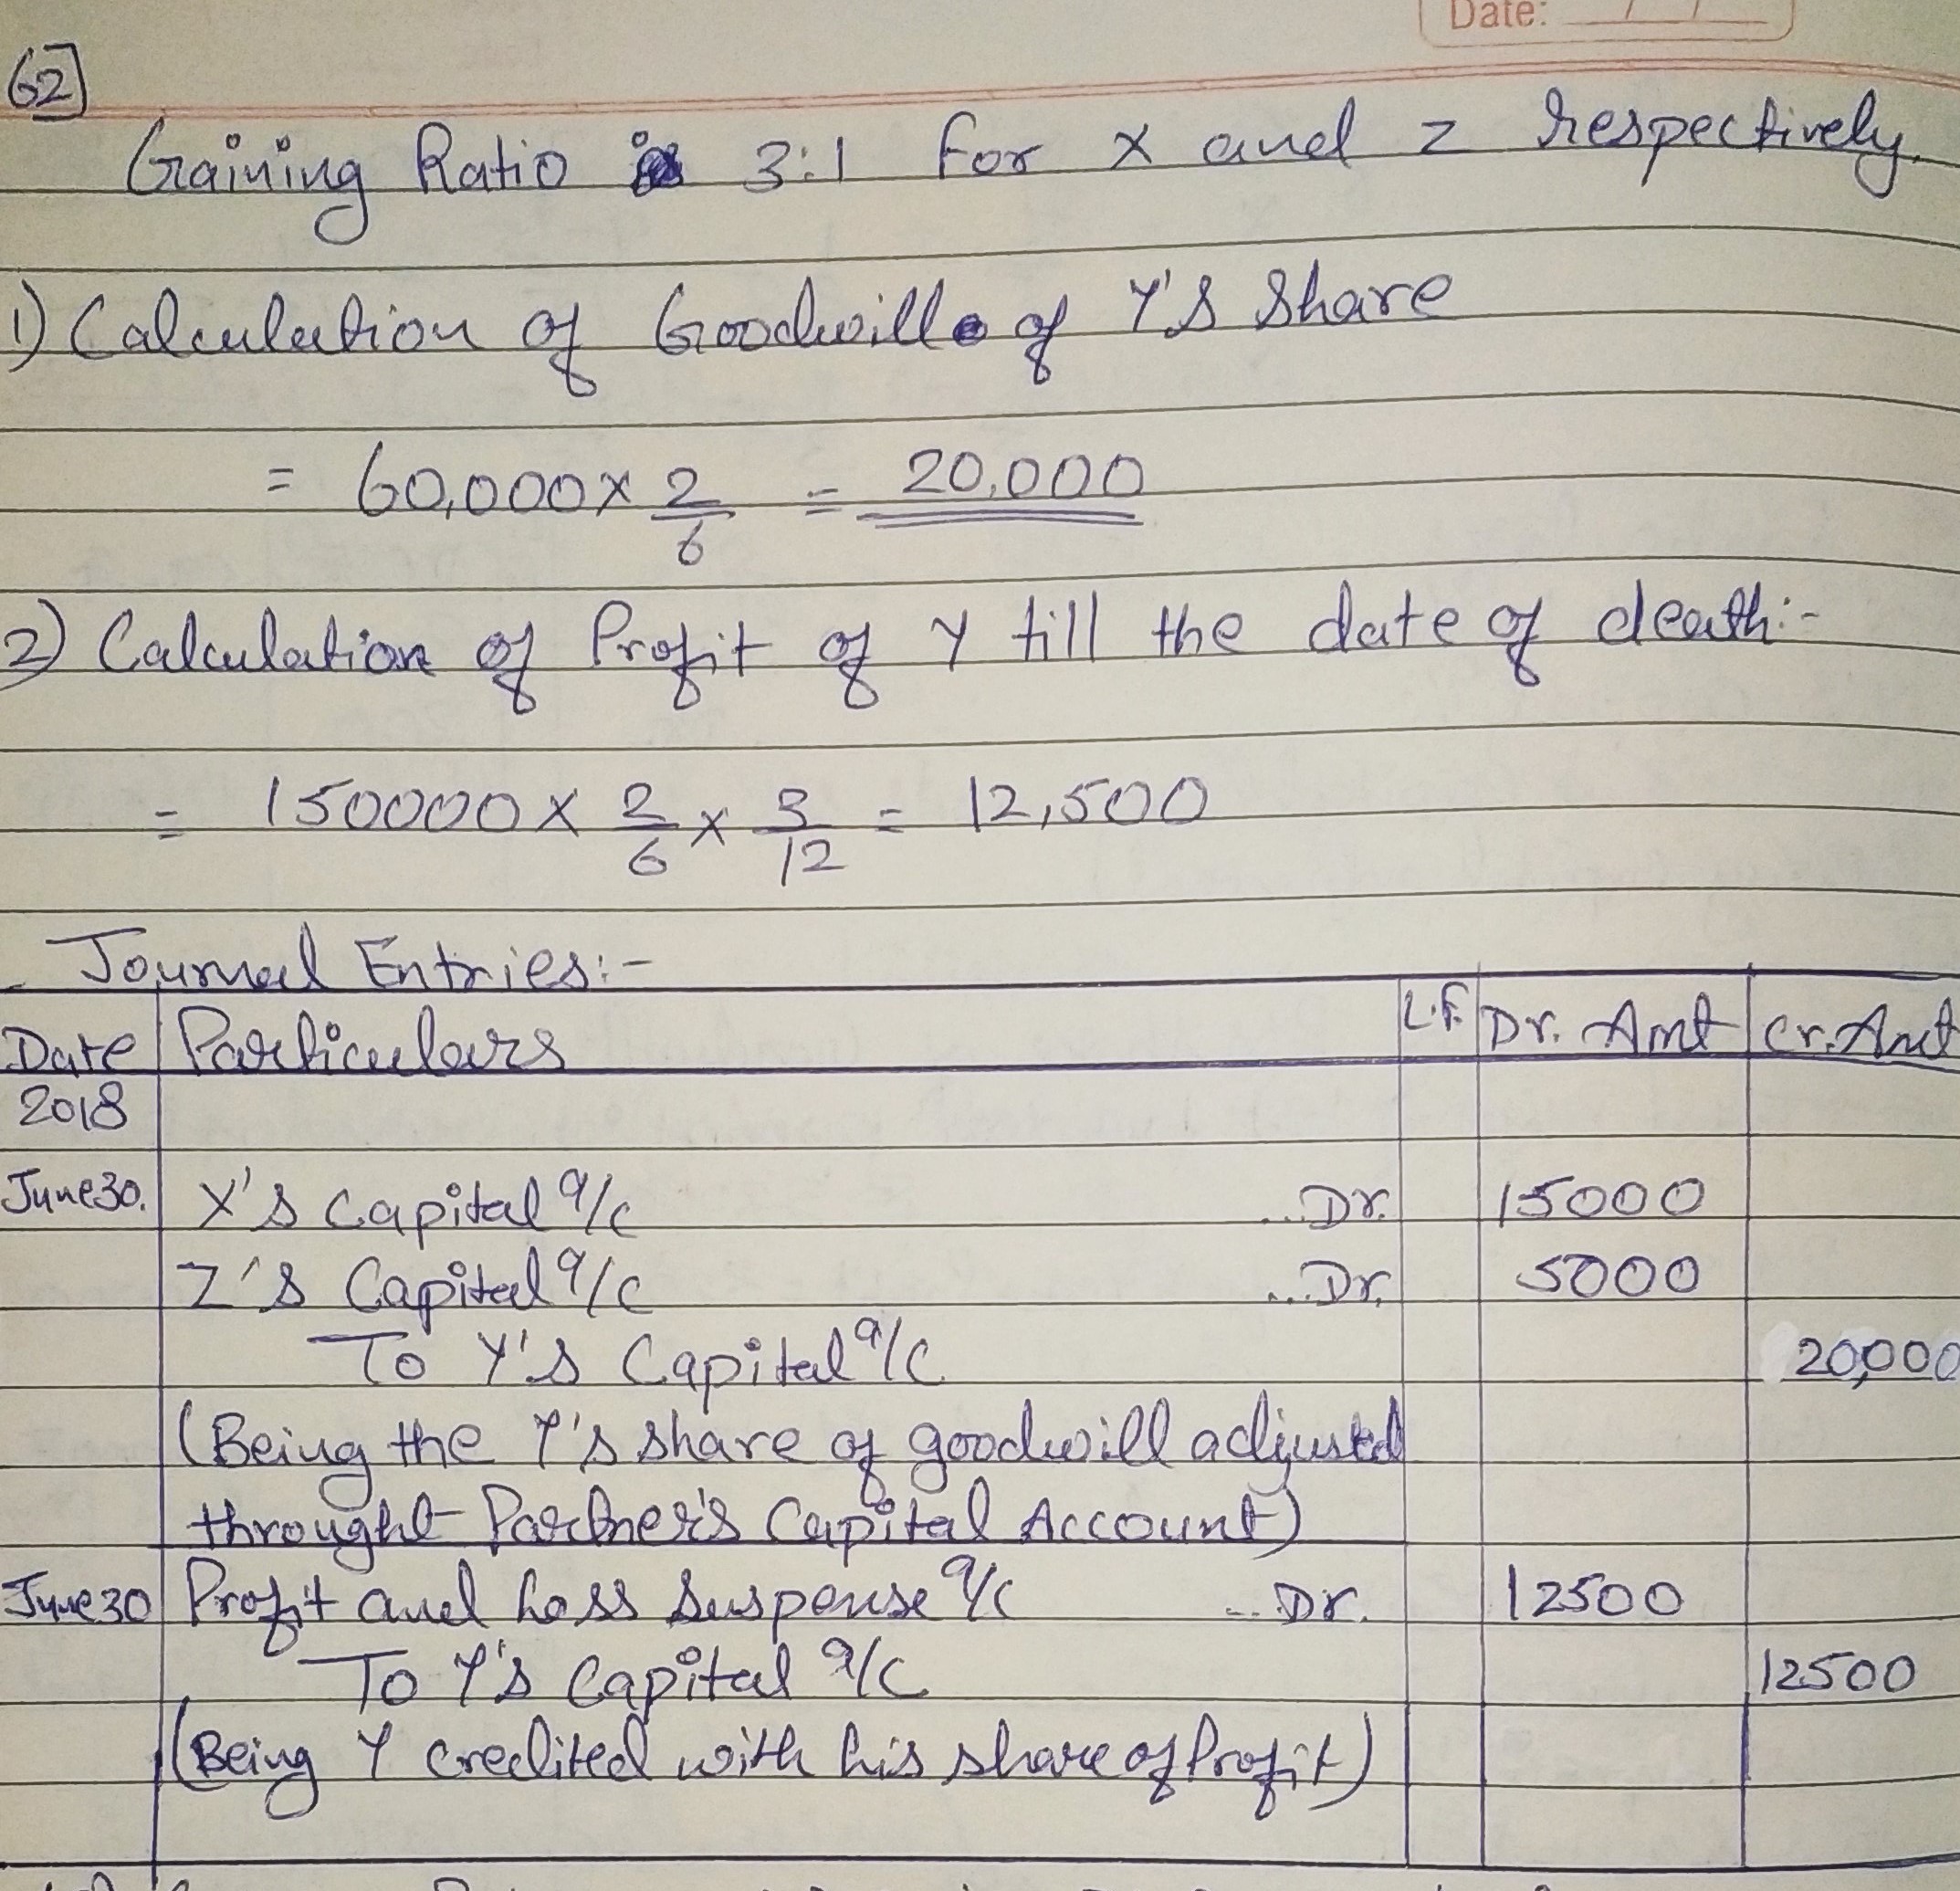 Date: / /
62]
Gaining Ratio is 3:1 for X and Z respectively.
1) Calculation of Goodwill of Y's Share
= 60,000 x 2/6 = 20,000
2) Calculation of Profit of Y till the date of death:-
= 150000 x 2/6 x 3/12 = 12,500
Journal Entries:-
Date Particulars L.F. Dr. Amt Cr. Amt
2018
June 30. X's Capital a/c ...Dr. 15000
Z's Capital a/c ...Dr. 5000
To Y's Capital a/c 20,000
(Being the Y's share of goodwill adjusted
throught Partner's Capital Account)
June 30 Profit and Loss Suspense a/c ...Dr. 12500
To Y's Capital a/c 12500
(Being Y credited with his share of Profit)